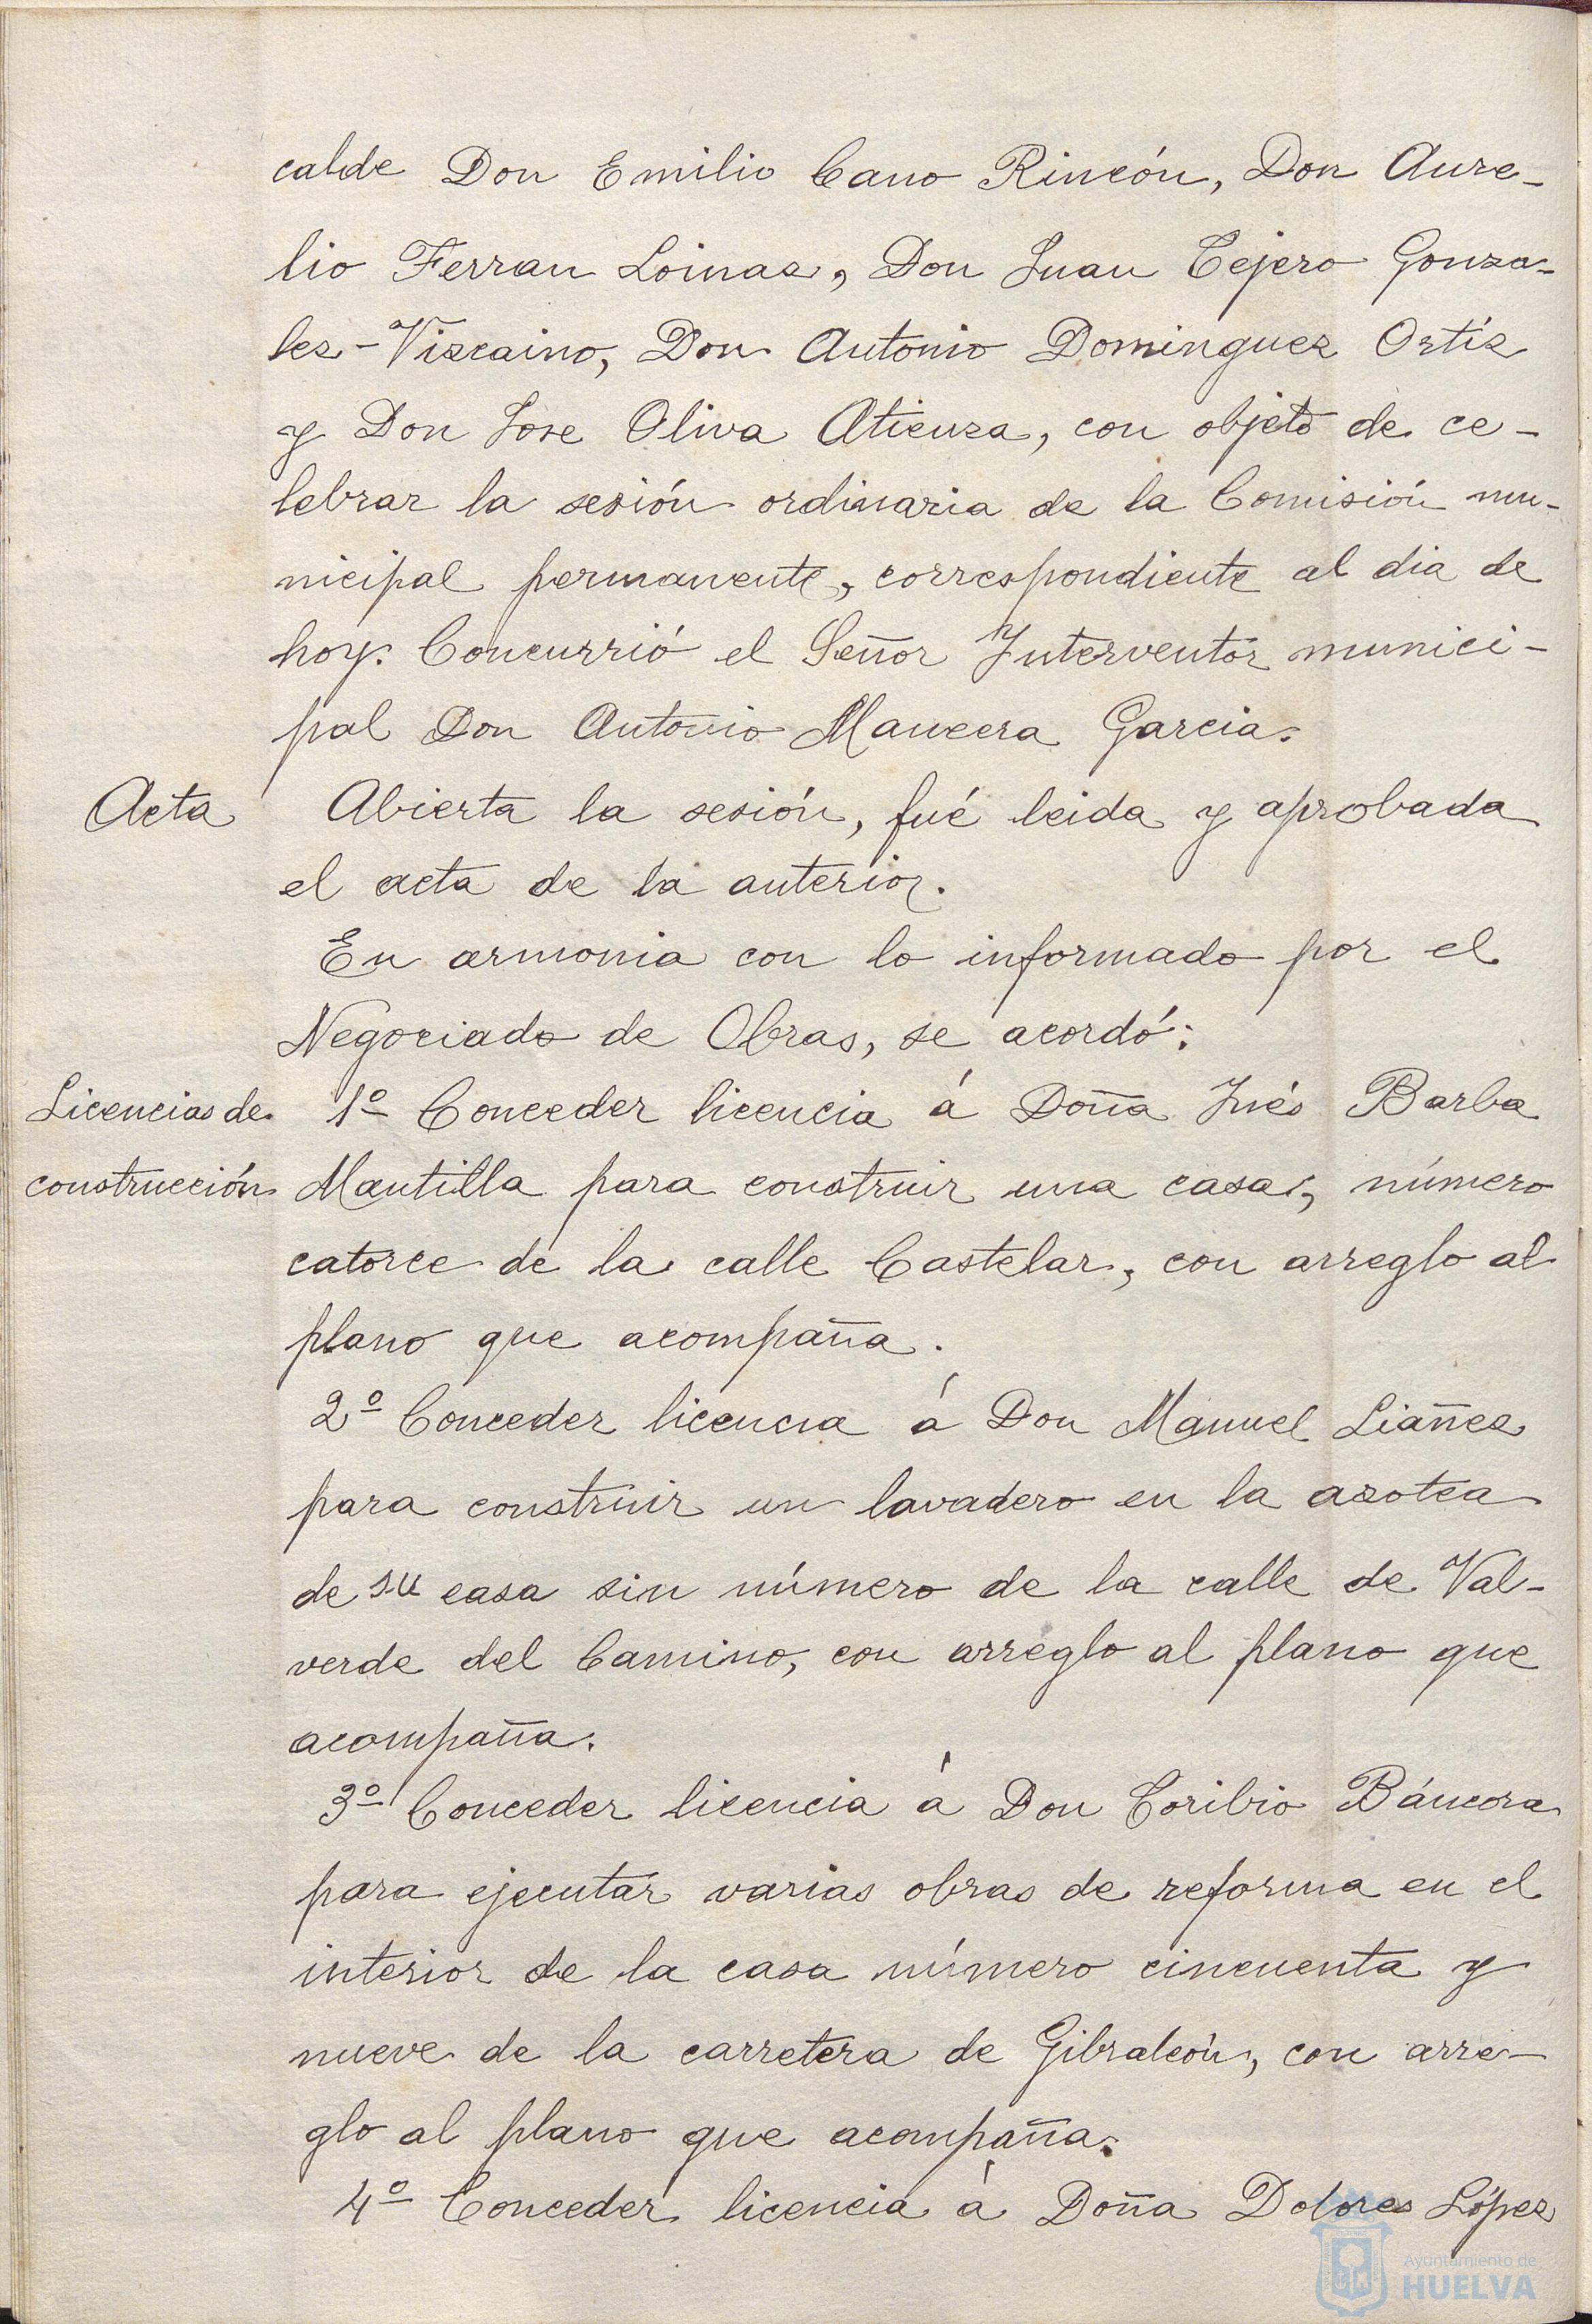 calde Don Emilio Cano Rincón, Don Aure-
lio Ferran Loinaz, Don Juan Tejero Gonza-
lez-Vizcaino, Don Antonio Dominguez Ortíz
y Don Jose Oliva Atienza, con objeto de ce-
lebrar la sesión ordinaria de la Comisión mu-
nicipal permanente, correspondiente al dia de
hoy. Concurrió el Señor Interventor munici-
pal Don Antonio Mancera Garcia.
Acta Abierta la sesión, fué leida y aprobada
el acta de la anterior.
En armonia con lo informado por el
Negociado de Obras, se acordó:
Licencias de 1º Conceder licencia á Doña Inés Barba
construcción Mantilla para construir una casa, número
catorce de la calle Castelar, con arreglo al
plano que acompaña.
2º Conceder licencia á Don Manuel Liañez
para construir un lavadero en la azotea
de su casa sin número de la calle de Val-
verde del Camino, con arreglo al plano que
acompaña.
3º Conceder licencia á Don Toribio Báncora
para ejecutar varias obras de reforma en el
interior de la casa número cincuenta y
nueve de la carretera de Gibraleón, con arre-
glo al plano que acompaña.
4º Conceder licencia á Doña Dolores López
Ayuntamiento de
HUELVA